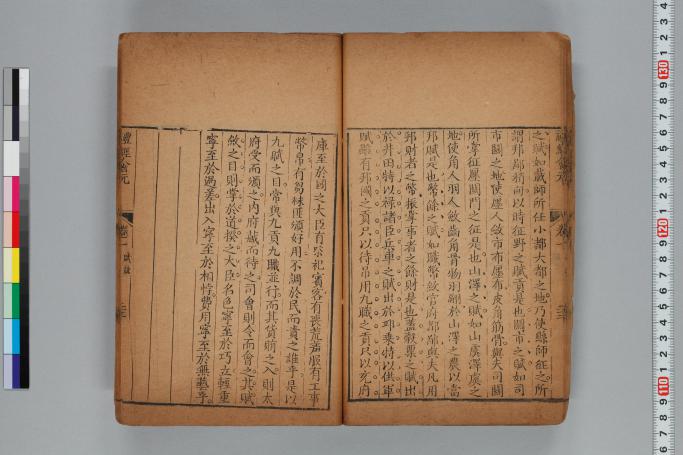 之賦如載師所任小都大都之地乃使縣師征之所
謂邦鄙稍甸以時征野之賦貢是也關市之賦如司
市關之地使廛人斂市布廛布皮角筋骨與夫司關
所掌征廛關門之征是也山澤之賦如山虞澤虞之
地使角人羽人斂齒角骨物羽翮於山澤之農以當
邦賦是也幣餘之賦如職幣斂官府都鄙與夫凡用
邦財者之幣振掌事者之餘財是也蓋觀粟之賦出
於井田特以祿諸臣兵車之賦出於邱乘特以供軍
賦雖有邦國之貢只以待弔用九職之貢只以充府
卷一
庫至於國之大臣有祭祀賓客有喪荒羞服有工事
幣帛有芻秣匪頒好用不調於民而責之誰乎是以
九賦之目常與九貢九職並行而其貨賄之入則太
府受而頒之內府藏而待之司會則令而會之其賦
斂之目則掌於道揆之大臣名色寧至於巧立輕重
寧至於過差出入寧至於相悖費用寧至於無藝乎
禮經會元
卷一
賦斂